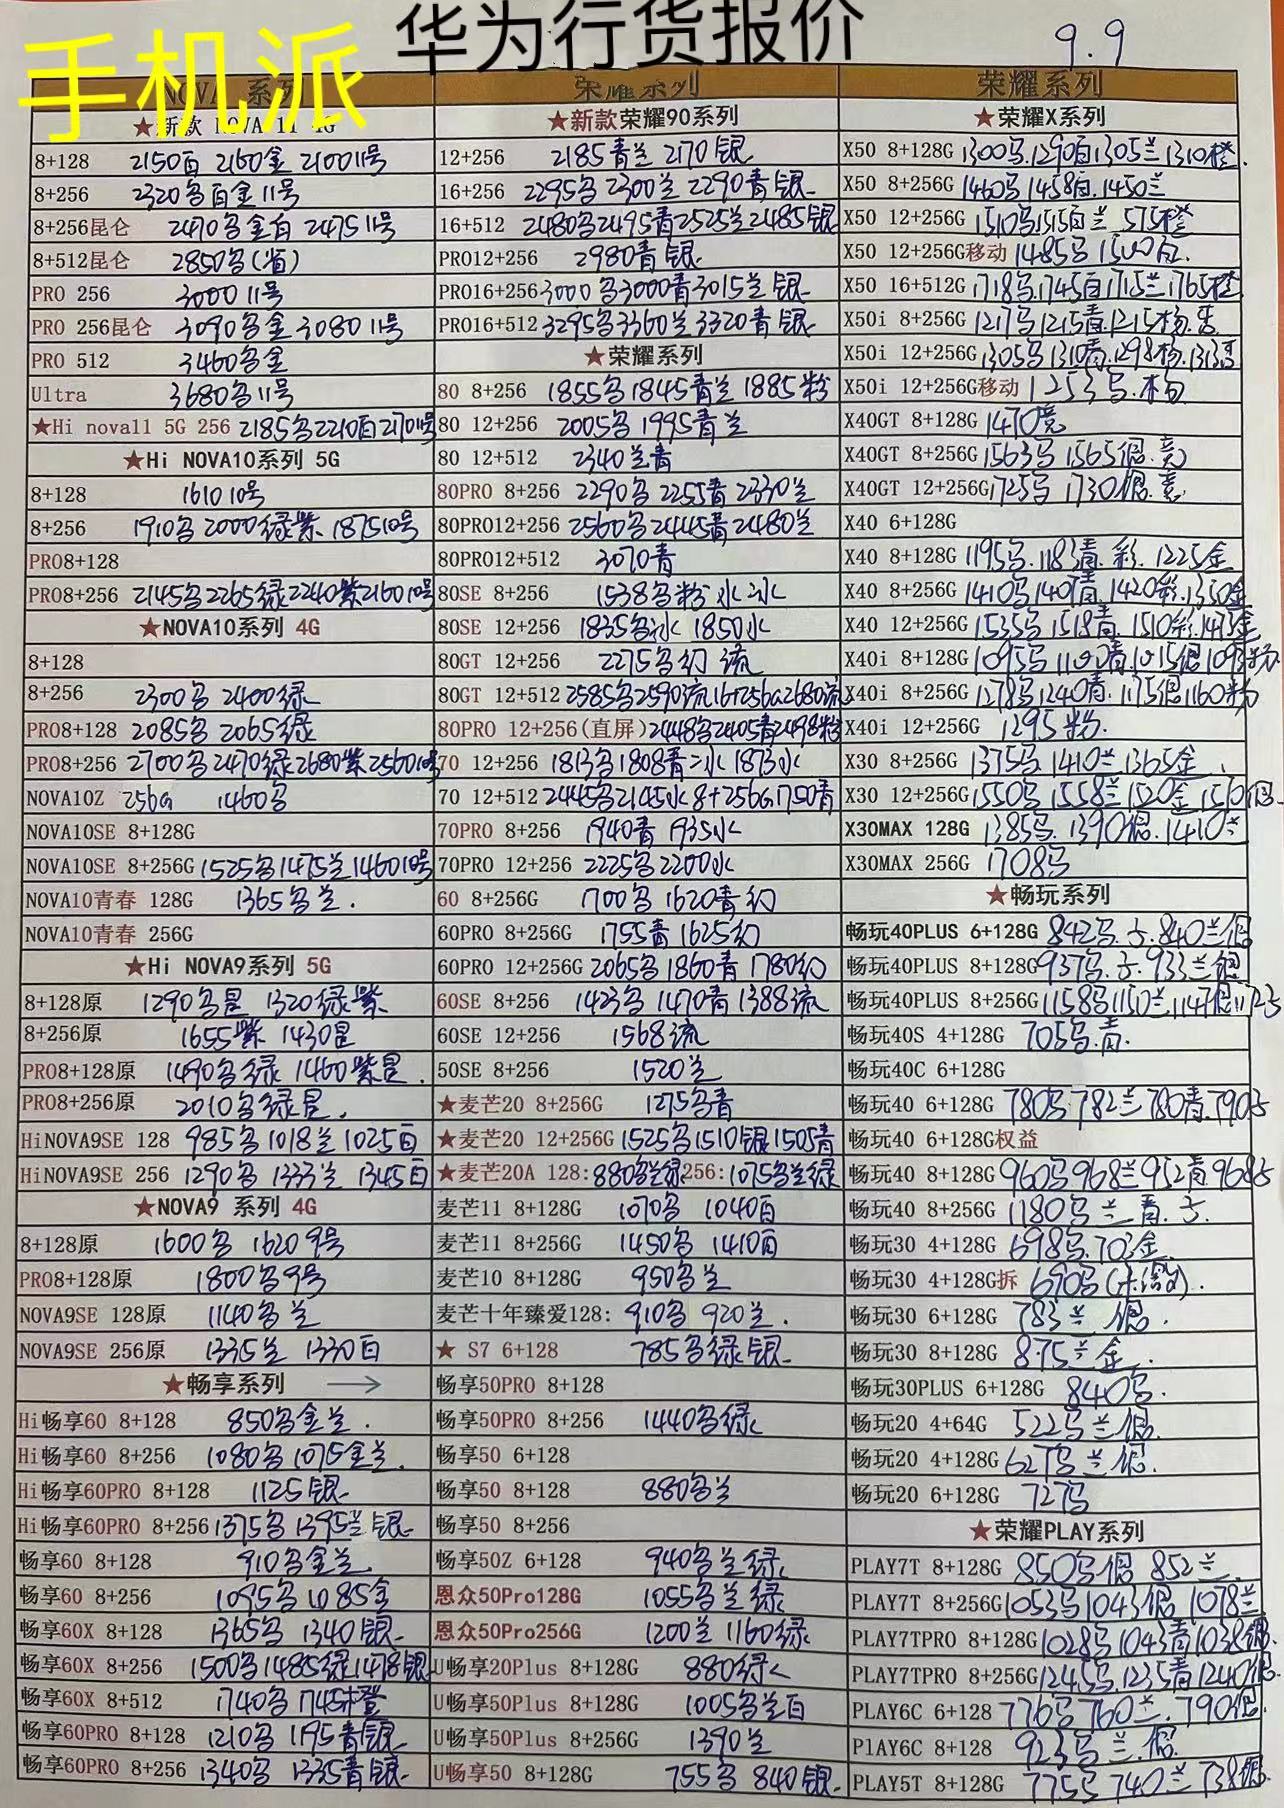 华为行货报价
手机派
9.9
NOVA 系列
★新款 NOVA 11 4G
8+128 2150白 2160金 2100 11号
8+256 2320名白金11号
8+256昆仑 2470名金白 2475 11号
8+512昆仑 2850名(省)
PRO 256 3000 11号
PRO 256昆仑 3090名金 3080 11号
PRO 512 3460名金
Ultra 3680名11号
★Hi nova11 5G 256 2185名2210白2170 11号
★Hi NOVA10系列 5G
8+128 1610 10号
8+256 1910名 2000绿紫 1875 10号
PRO8+128
PRO8+256 2145名2265绿2240紫2160 10号
★NOVA10系列 4G
8+128
8+256 2300名 2400绿
PRO8+128 2085名 2065绿
PRO8+256 2700名2470绿2680紫2560 10号
NOVA10Z 256G 1460名
NOVA10SE 8+128G
NOVA10SE 8+256G 1525名1475兰1460 10号
NOVA10青春 128G 1365名兰.
NOVA10青春 256G
★Hi NOVA9系列 5G
8+128原 1290名星 1320绿紫
8+256原 1655紫 1430星
PRO8+128原 1490名绿 1460紫星.
PRO8+256原 2010名绿星.
HiNOVA9SE 128 985名1018兰1025白
HiNOVA9SE 256 1290名 1333兰 1345白
★NOVA9 系列 4G
8+128原 1600名 1620 9号
PRO8+128原 1800名9号
NOVA9SE 128原 1140名兰
NOVA9SE 256原 1335兰 1330白
★畅享系列 →
Hi畅享60 8+128 850名金兰.
Hi畅享60 8+256 1080名 1075金兰.
Hi畅享60PRO 8+128 1125银
Hi畅享60PRO 8+256 1375名1395兰银
畅享60 8+128 910名金兰.
畅享60 8+256 1095名1085金
畅享60X 8+128 1365名 1340银
畅享60X 8+256 1500名1485绿1478银
畅享60X 8+512 1740名 1745橙
畅享60PRO 8+128 1210名 1195青银
畅享60PRO 8+256 1340名 1335青银
荣耀系列
★新款荣耀90系列
12+256 2185青兰 2170银
16+256 2295名2300兰2290青银
16+512 2480名2495青2525兰2485银
PRO12+256 2980青银
PRO16+256 3000名3000青3015兰银
PRO16+512 3295名3360兰3320青银
★荣耀系列
80 8+256 1855名1845青兰1885粉
80 12+256 2005名1995青兰
80 12+512 2340兰青
80PRO 8+256 2290名2255青2330兰
80PRO12+256 2560名2445青2480兰
80PRO12+512 3070青
80SE 8+256 1538名粉冰
80SE 12+256 1835名 1850
80GT 12+256 2275名幻 流
80GT 12+512 2585名2590流16+256G2680流
80PRO 12+256(直屏) 2448名2405青2498粉
70 12+256 1813名1808青冰1873水
70 12+512 2445名2145水8+256G1750青
70PRO 8+256 1940青 1935水
70PRO 12+256 2225名2200水
60 8+256G 1700名 1620青幻
60PRO 8+256G 1755青1625幻
60PRO 12+256G 2065名1860青 1780幻
60SE 8+256 1423名1470青1388流
60SE 12+256 1568流
50SE 8+256 1520兰
★麦芒20 8+256G 1275名青
★麦芒20 12+256G 1525名1510银1505青
★麦芒20A 128:880名兰绿256:1075名兰绿
麦芒11 8+128G 1070名 1040白
麦芒11 8+256G 1450名 1410白
麦芒10 8+128G 950名兰
麦芒十年臻爱128: 910名 920兰.
★ S7 6+128 785名绿银
畅享50PRO 8+128
畅享50PRO 8+256 1440名绿
畅享50 6+128
畅享50 8+128 880名兰
畅享50 8+256
畅享50Z 6+128 940名兰绿
恩众50Pro128G 1055名兰绿
恩众50Pro256G 1200兰1160绿
U畅享20Plus 8+128G 880绿
U畅享50Plus 8+128G 1005名兰白
U畅享50Plus 8+256G 1390兰
U畅享50 8+128G 755名 840银
荣耀系列
★荣耀X系列
X50 8+128G 1300名.1290白1305兰1310橙.
X50 8+256G 1460名1458白.1450兰
X50 12+256G 1510名1515白兰 1575橙
X50 12+256G移动 1485名
X50 16+512G 1718名.1745白1715兰1765橙
X50i 8+256G 1217名1215青.1215杨.黑
X50i 12+256G 1305名1310青.1298杨.
X50i 12+256G移动 1253名.杨
X40GT 8+128G 1470竞
X40GT 8+256G 1563名1565银.竞
X40GT 12+256G 1725名 1730银.竞
X40 6+128G
X40 8+128G 1195名.1183青.彩.1225金
X40 8+256G 1410名1407青.1420彩.1350金
X40 12+256G 1535名1518青.1510彩.1475金
X40i 8+128G 1095名1100青.1015银1093粉
X40i 8+256G 1278名1240青.1175银1160粉
X40i 12+256G 1295粉.
X30 8+256G 1375名1410兰1365金.
X30 12+256G 1550名1558兰1520金1510银.
X30MAX 128G 1385名.1390银.1410兰
X30MAX 256G 1708名
★畅玩系列
畅玩40PLUS 6+128G 842名.840兰银
畅玩40PLUS 8+128G 937名.933兰银
畅玩40PLUS 8+256G 1158名1150兰1147银
畅玩40S 4+128G 705名.青.
畅玩40C 6+128G
畅玩40 6+128G 780名.782兰780青.790
畅玩40 6+128G权益
畅玩40 8+128G 960名968兰952青968
畅玩40 8+256G 1180名兰青.
畅玩30 4+128G 698名.703金
畅玩30 4+128G拆 690名
畅玩30 6+128G 783兰 银.
畅玩30 8+128G 875兰金.
畅玩30PLUS 6+128G 840名.
畅玩20 4+64G 522名兰银.
畅玩20 4+128G 627名兰银.
畅玩20 6+128G 727名
★荣耀PLAY系列
PLAY7T 8+128G 850名银 852兰
PLAY7T 8+256G 1053名1043银1078兰
PLAY7TPRO 8+128G 1028名1043青1038银.
PLAY7TPRO 8+256G 1245名.1235青1240银.
PLAY6C 6+128 776名760兰.790银.
PlAY6C 8+128 923名兰.银.
PLAY5T 8+128G 775名740兰738银.